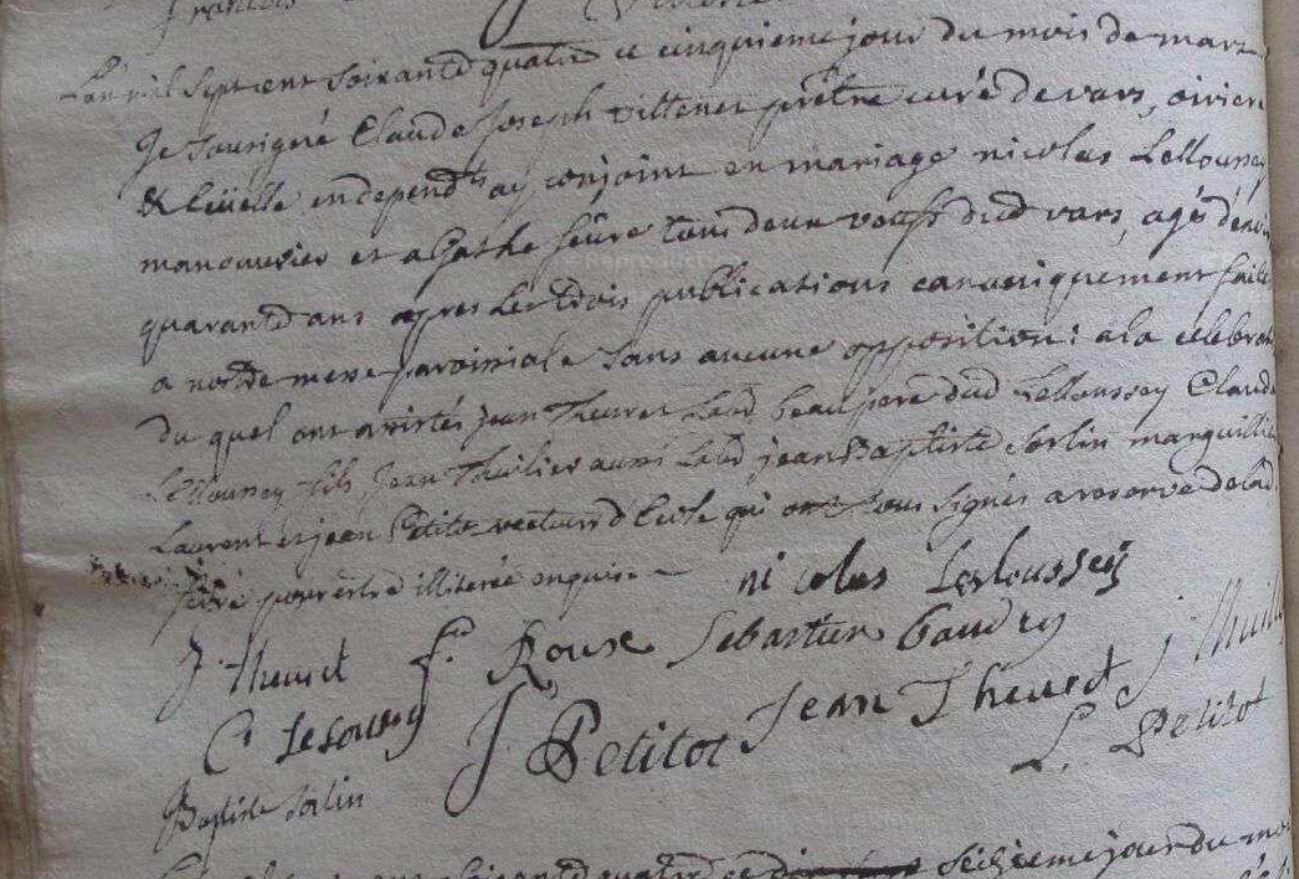 L'an mil sept cent soixante quatre ce cinquieme jour du mois de mars
Je soussigné Claude Joseph prêtre curé de vars,
& independts ay conjoint en mariage nicolas Lelloussey
manouvrier et agathe fevre tous deux dud vars, agés d'envir
quarante ans apres les trois publications canoniquement faite
a notre messe paroissiale sans aucune opposition: a la celebrati
du quel ont assistés jean Thevret Lab beau pere dud Lelloussey Claude
Lelloussey fils, Jean Thuilier aussi Lab jean Baptiste Sorlin marguillier
Laurent et jean Petitot recteurs d'Ecole qui sous signés a reserve de lad
fevre pour estre illiterée enquise
nicolas Lesloussey
J. thevret f. Roux Sebastien baudry
C Lesoussey J. Petitot Jean Thevret J thuili
L. Petitot
Baptiste Sorlin
soixante quatre ce seizieme jour du mo